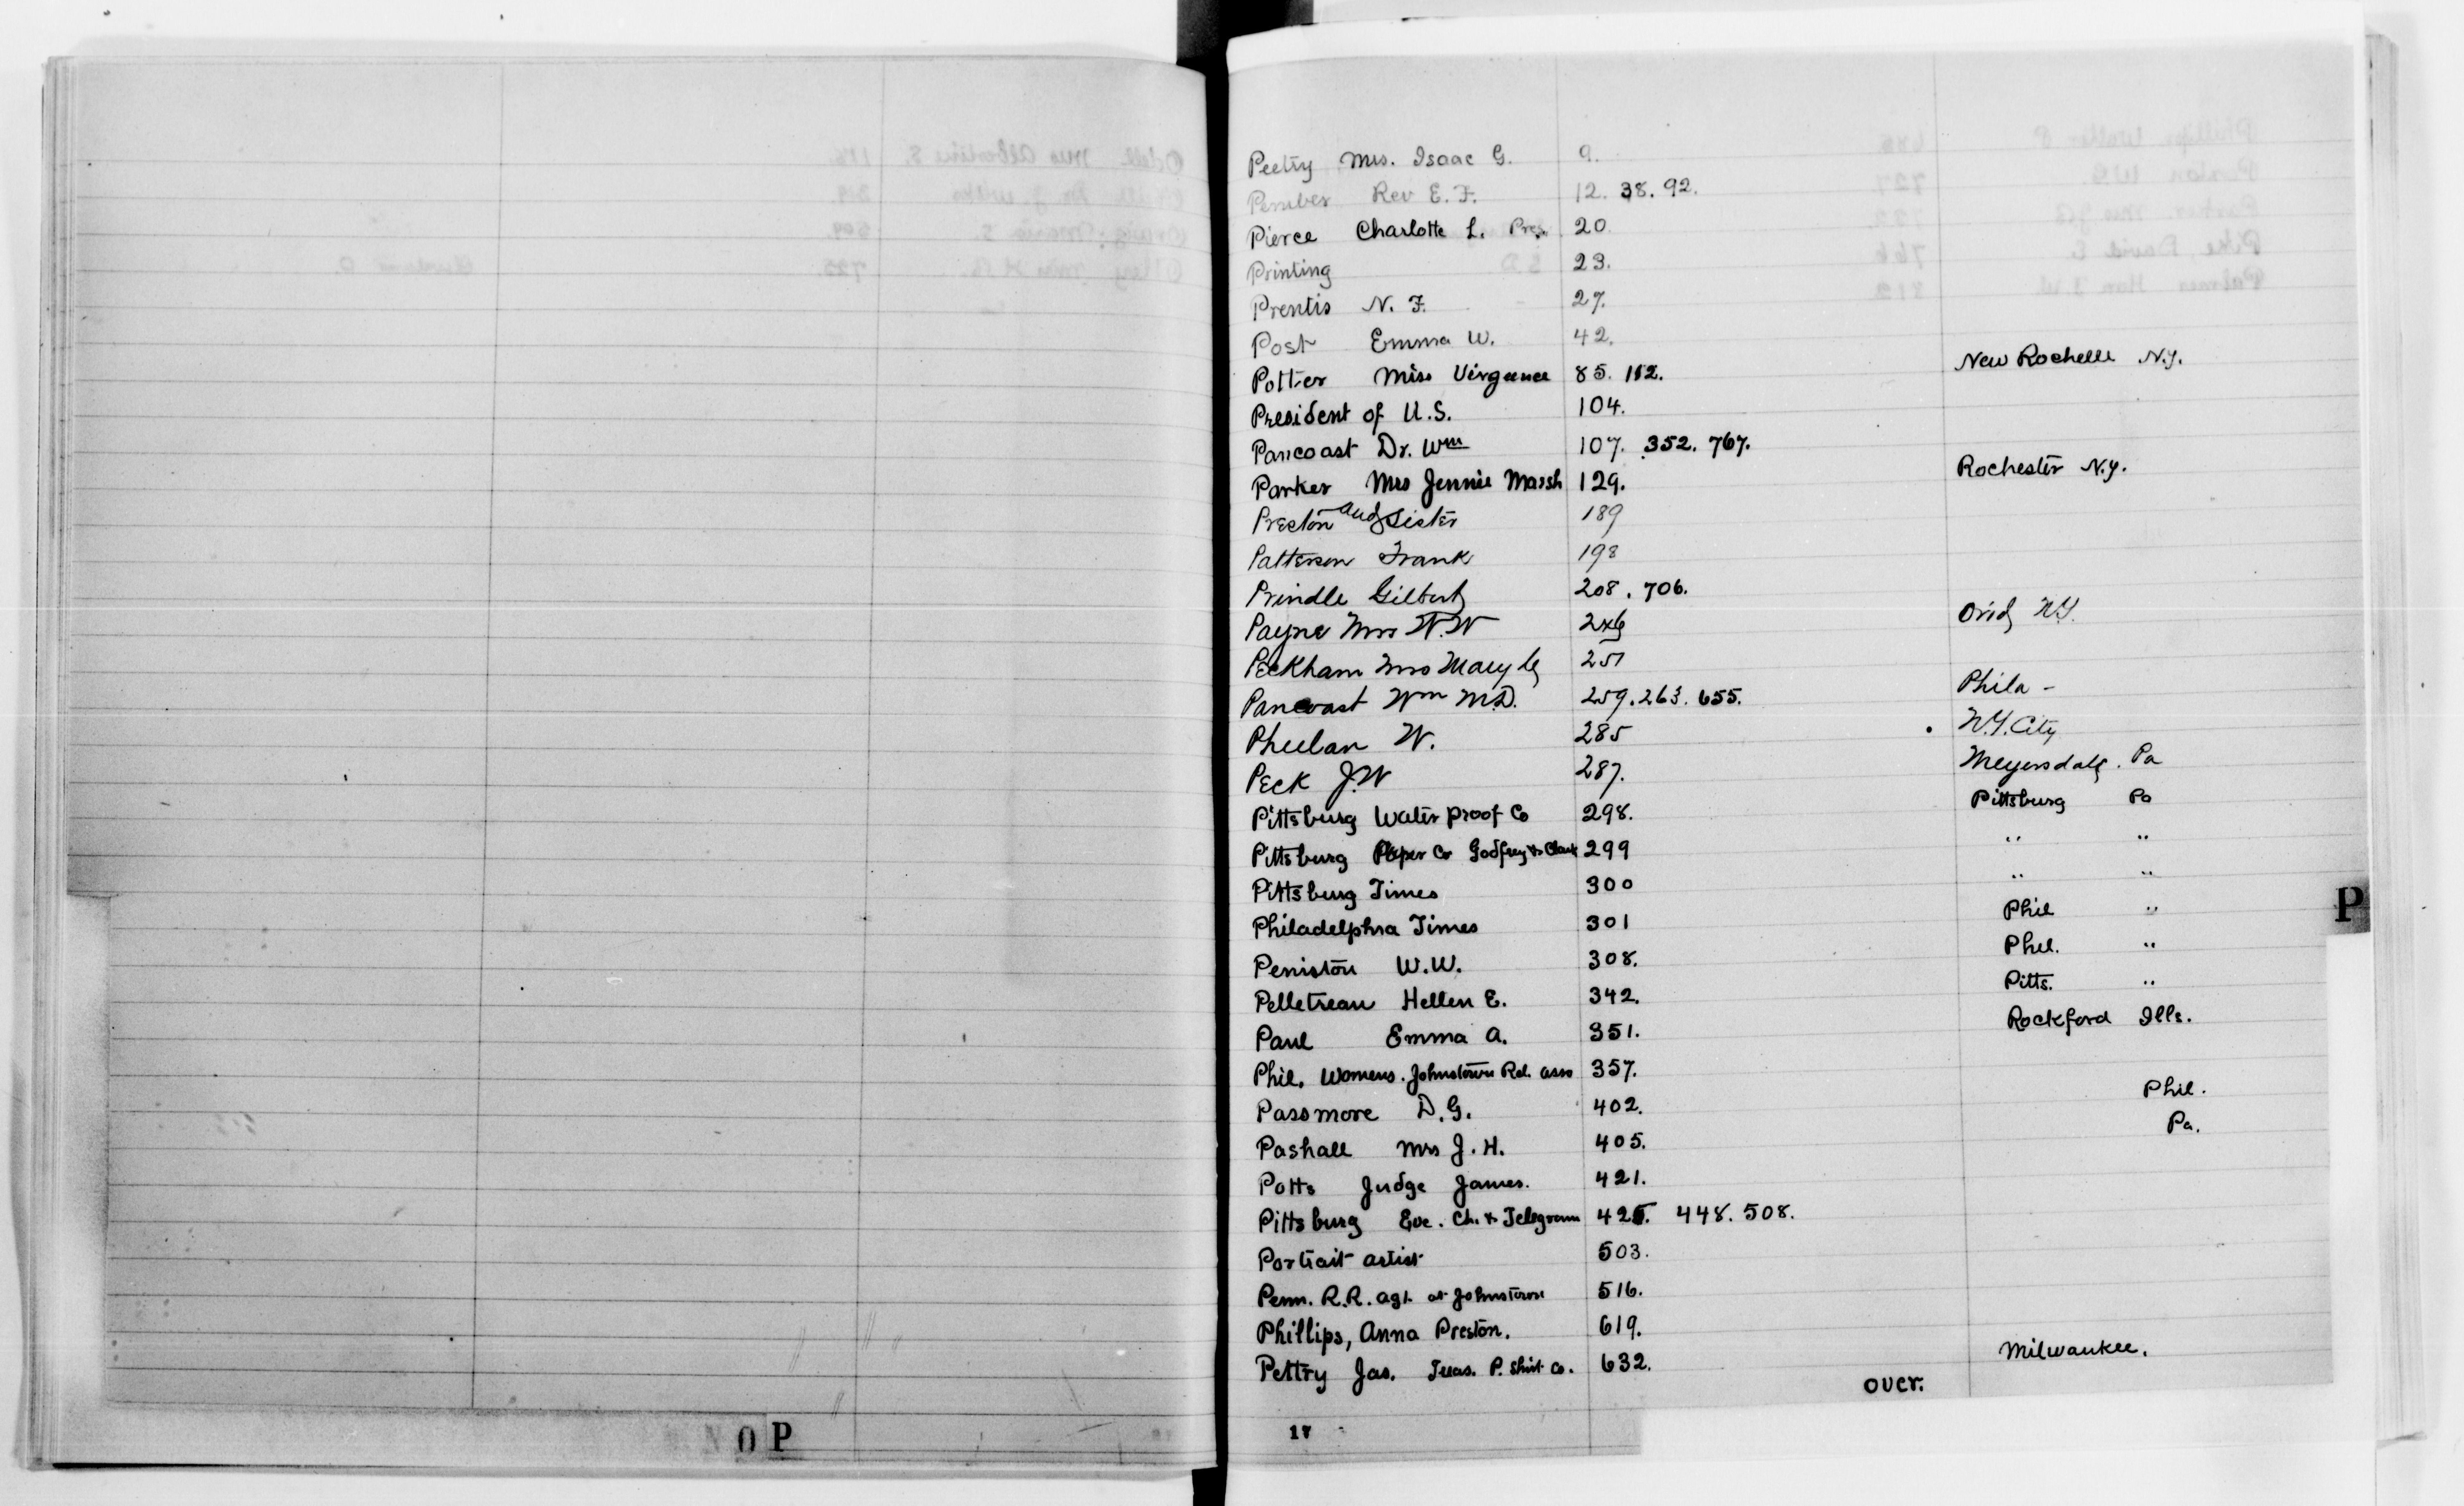 Peetry Mrs. Isaac G. 9.
Pember Rev E. F. 12. 38. 92.
Pierce Charlotte L. Pres. 20
Printing 23.
Prentis N. F. 27.
Post Emma W. 42.
Potter Miss Virgence 85. 112. New Rochelle N.Y.
President of U.S. 104.
Pancoast Dr. Wm 107. 352. 767.
Parker Mrs Jennie Marsh 129. Rochester N.Y.
Preston and Sister 189
Patterson Frank 198
Prindle Gilbert 208. 706.
Payne Mrs W.W 246 Ovid N.Y.
Peckham Mrs Mary 251
Pancoast Wm M.D. 259. 263. 655. Phila -
Pheelan W. 285 N.Y. City
Peck J.W 287. Meyersdale. Pa
Pittsburg Water proof Co 298. Pittsburg Pa
Pittsburg Paper Co Godfrey & Clark 299 " "
Pittsburg Times 300 " "
Philadelphia Times 301 Phil "
Peniston W.W. 308. Phil. "
Pelletreau Hellen E. 342. Pitts. "
Paul Emma A. 351. Rockford Ills.
Phil. Womens. Johnstown Rel. asso 357.
Passmore D.G. 402. Phil.
Pashall Mrs J.H. 405. Pa.
Potts Judge James. 421.
Pittsburg Eve. Ch. & Telegram 425. 448. 508.
Portrait artist 503.
Penn. R.R. agt. at Johnstown 516.
Phillips, Anna Preston. 619.
Pettry Jas. Treas. P. Shirt Co. 632. Milwaukee.
over.
P
O P